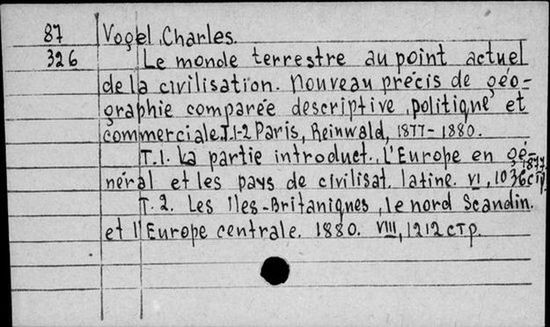 87 Vogel, Charles.
326 Le monde terrestre au point actuel
de la civilisation. Nouveau précis de géo-
graphie comparée descriptive, politique et
commerciale. T. 1-2 Paris, Reinwald, 1877-1880.
T. 1. La partie introduct., l'Europe en gé-
néral et les pays de civilisat. latine. 1877. VI, 1036 стр.
T. 2. Les Iles-Britaniques, le nord Scandin.
et l'Europe centrale. 1880. VIII, 1212 стр.